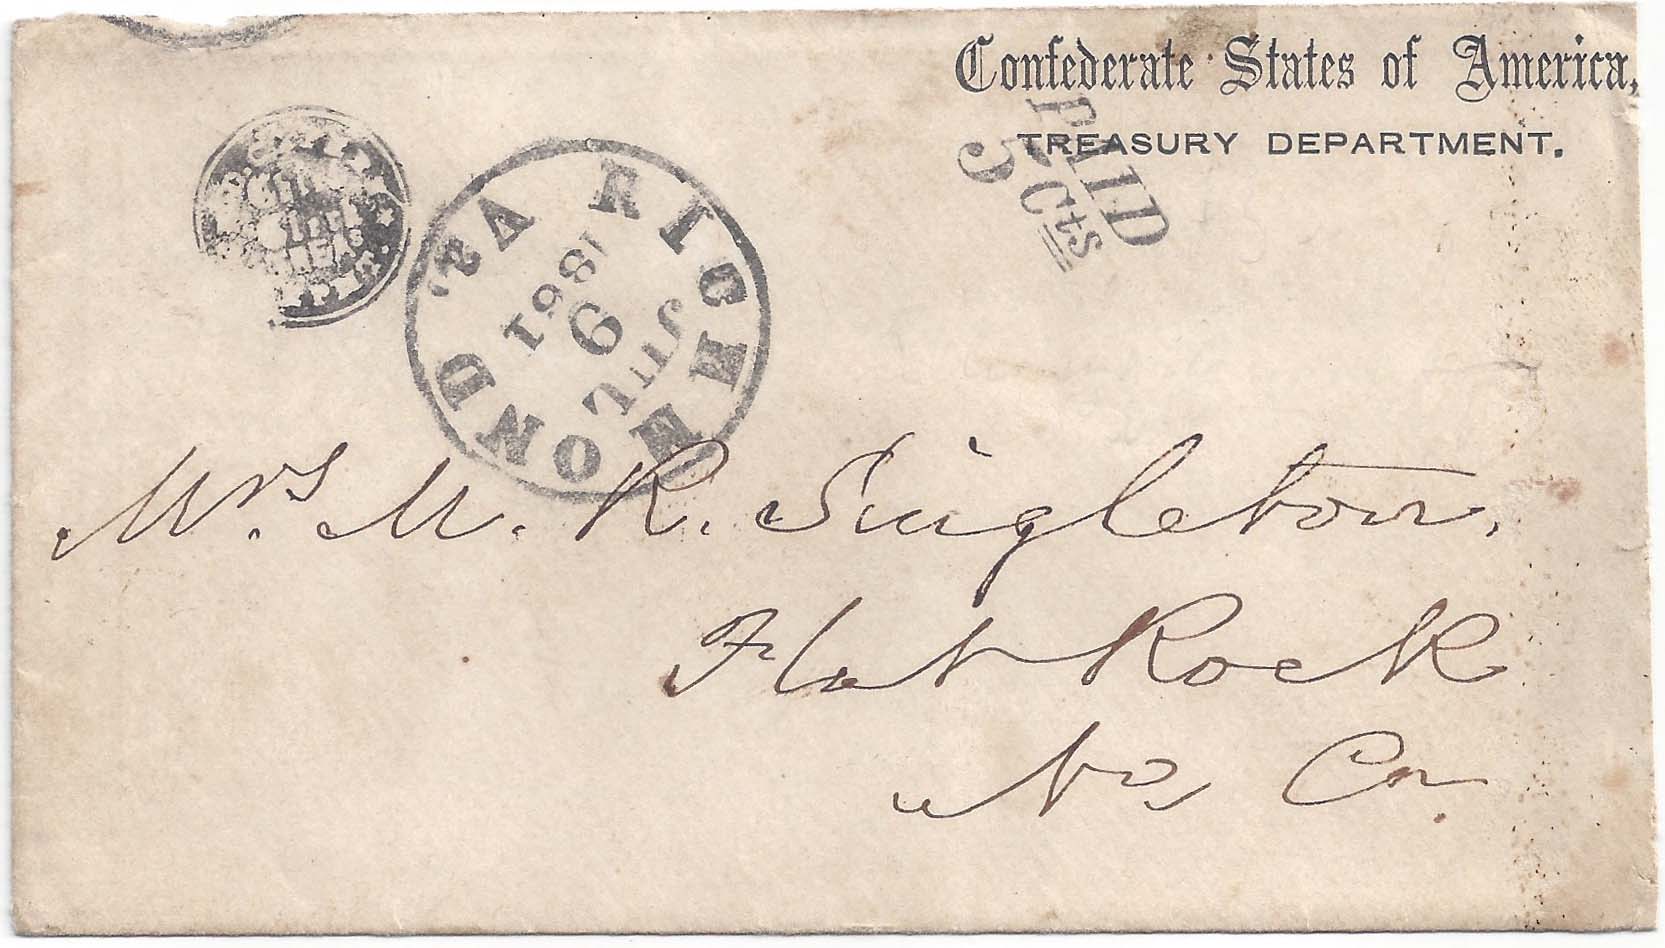 Confederate States of America,
TREASURY DEPARTMENT.
PAID
5 Cts
RICHMOND Va.
JUL
9
1861
Mrs. M. R. Singleton,
Flat Rock
No, Ca.